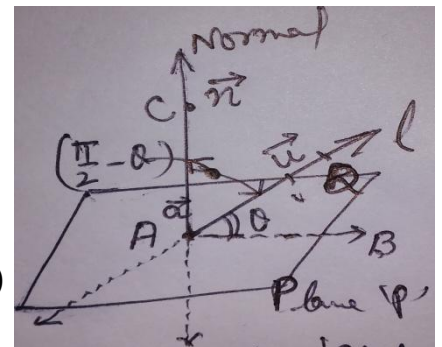 Normal
C n⃗
(π/2 - θ) u⃗ l
Q
A a⃗ θ B
Plane 'P'
)